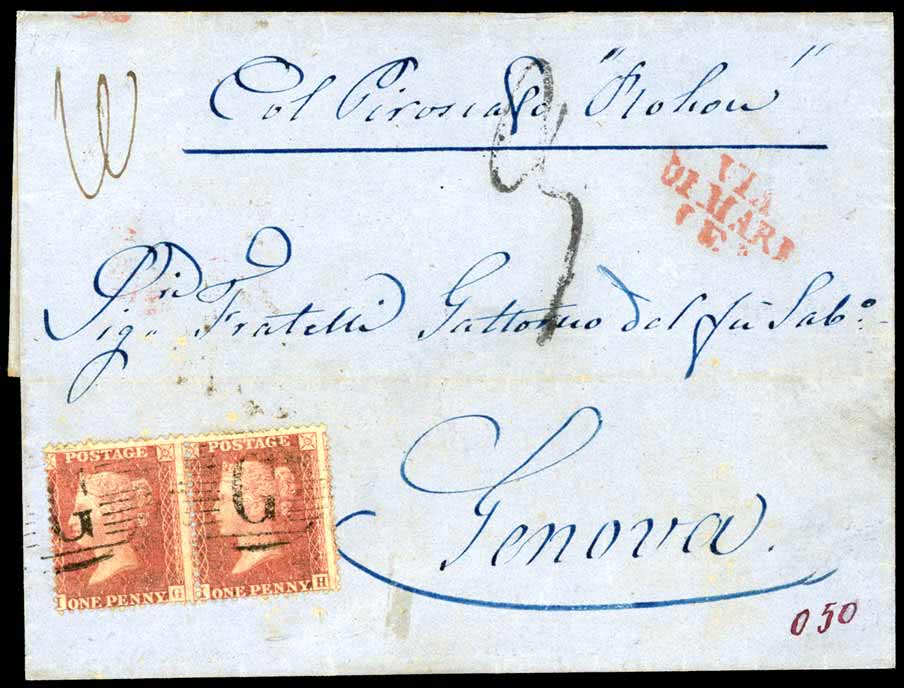 Col Piroscafo "Rohon"
VIA
DI MARE
(E
Sig.ri Fratelli Gattorno del fu Sab.o
POSTAGE POSTAGE
G G
I ONE PENNY G I ONE PENNY H
Genova.
050